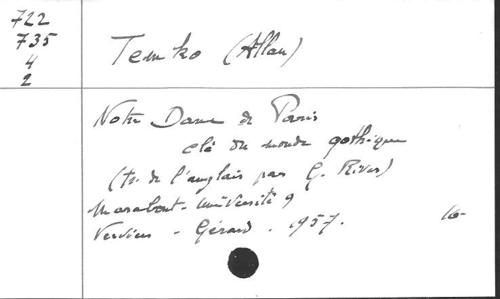 722
735
4
2
Temko (Allan)
Notre Dame de Paris
clé du monde gothique
(tr. de l'anglais par G. Rives)
Marabout-Université 9
Verviers - Gérard. 1957.
16-